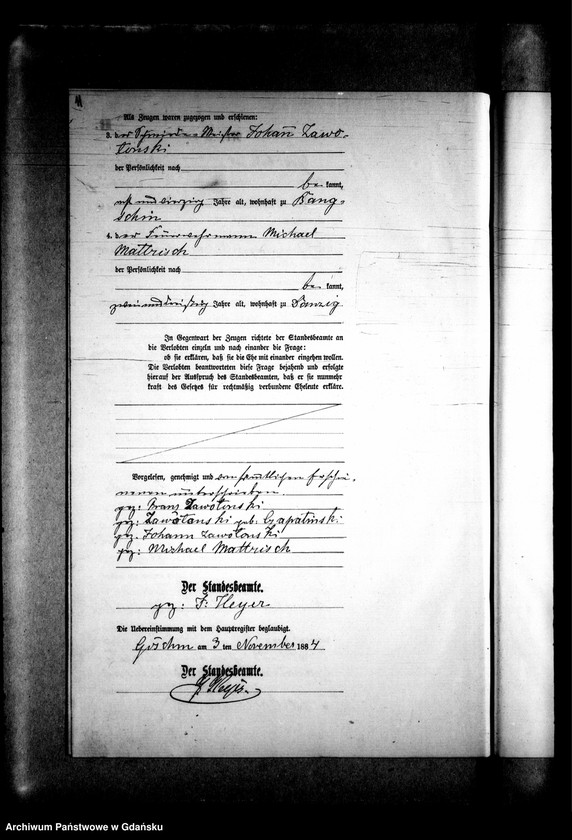 Als Zeugen waren zugezogen und erschienen:
3. der Schmiede-Meister Johann Zawo-
tonski
der Persönlichkeit nach
be kannt,
und vierzig Jahre alt, wohnhaft zu Bang-
schin
4. der Feuerwehrmann Michael
Mattrisch
der Persönlichkeit nach
be kannt,
zwei und dreißig Jahre alt, wohnhaft zu Danzig
In Gegenwart der Zeugen richtete der Standesbeamte an
die Verlobten einzeln und nach einander die Frage:
ob sie erklären, daß sie die Ehe mit einander eingehen wollen.
Die Verlobten beantworteten diese Frage bejahend und erfolgte
hierauf der Ausspruch des Standesbeamten, daß er sie nunmehr
kraft des Gesetzes für rechtmäßig verbundene Eheleute erkläre.
Vorgelesen, genehmigt und von sämtlichen Erschie-
nenen unterschrieben.
gez: Franz Zawotonski
gez: Zawotonski geb. Czapatinski
gez. Johann Zawotonski
gez: Michael Mattrisch
Der Standesbeamte.
gez: F. Heyer
Die Uebereinstimmung mit dem Hauptregister beglaubigt.
Gischin am 3 ten November 1884
Der Standesbeamte.
F. Heyer.
Archiwum Państwowe w Gdańsku